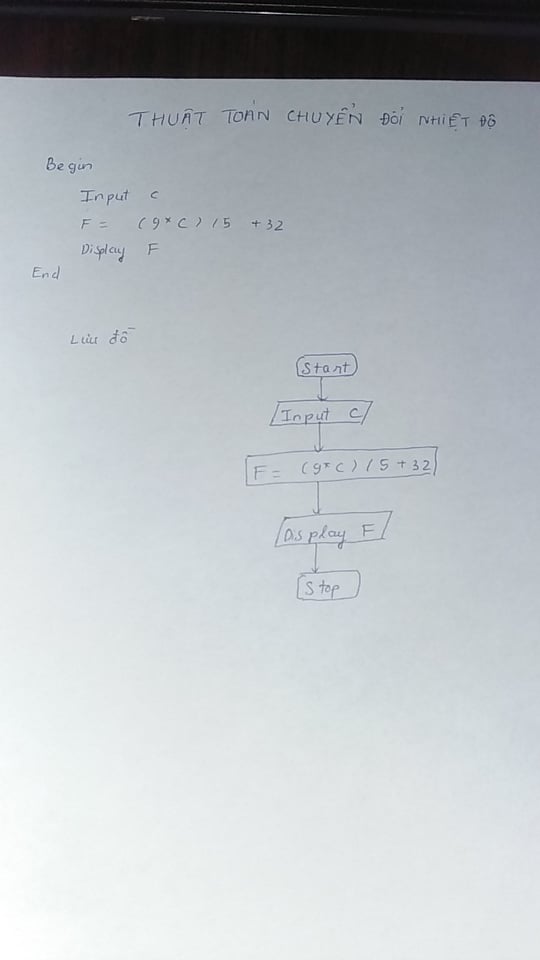 THUẬT TOÁN CHUYỂN ĐỔI NHIỆT ĐỘ
Begin
Input C
F = (9*C)/5 +32
Display F
End
Lưu đồ
Start
Input C
F = (9*C)/5+32
Display F
Stop